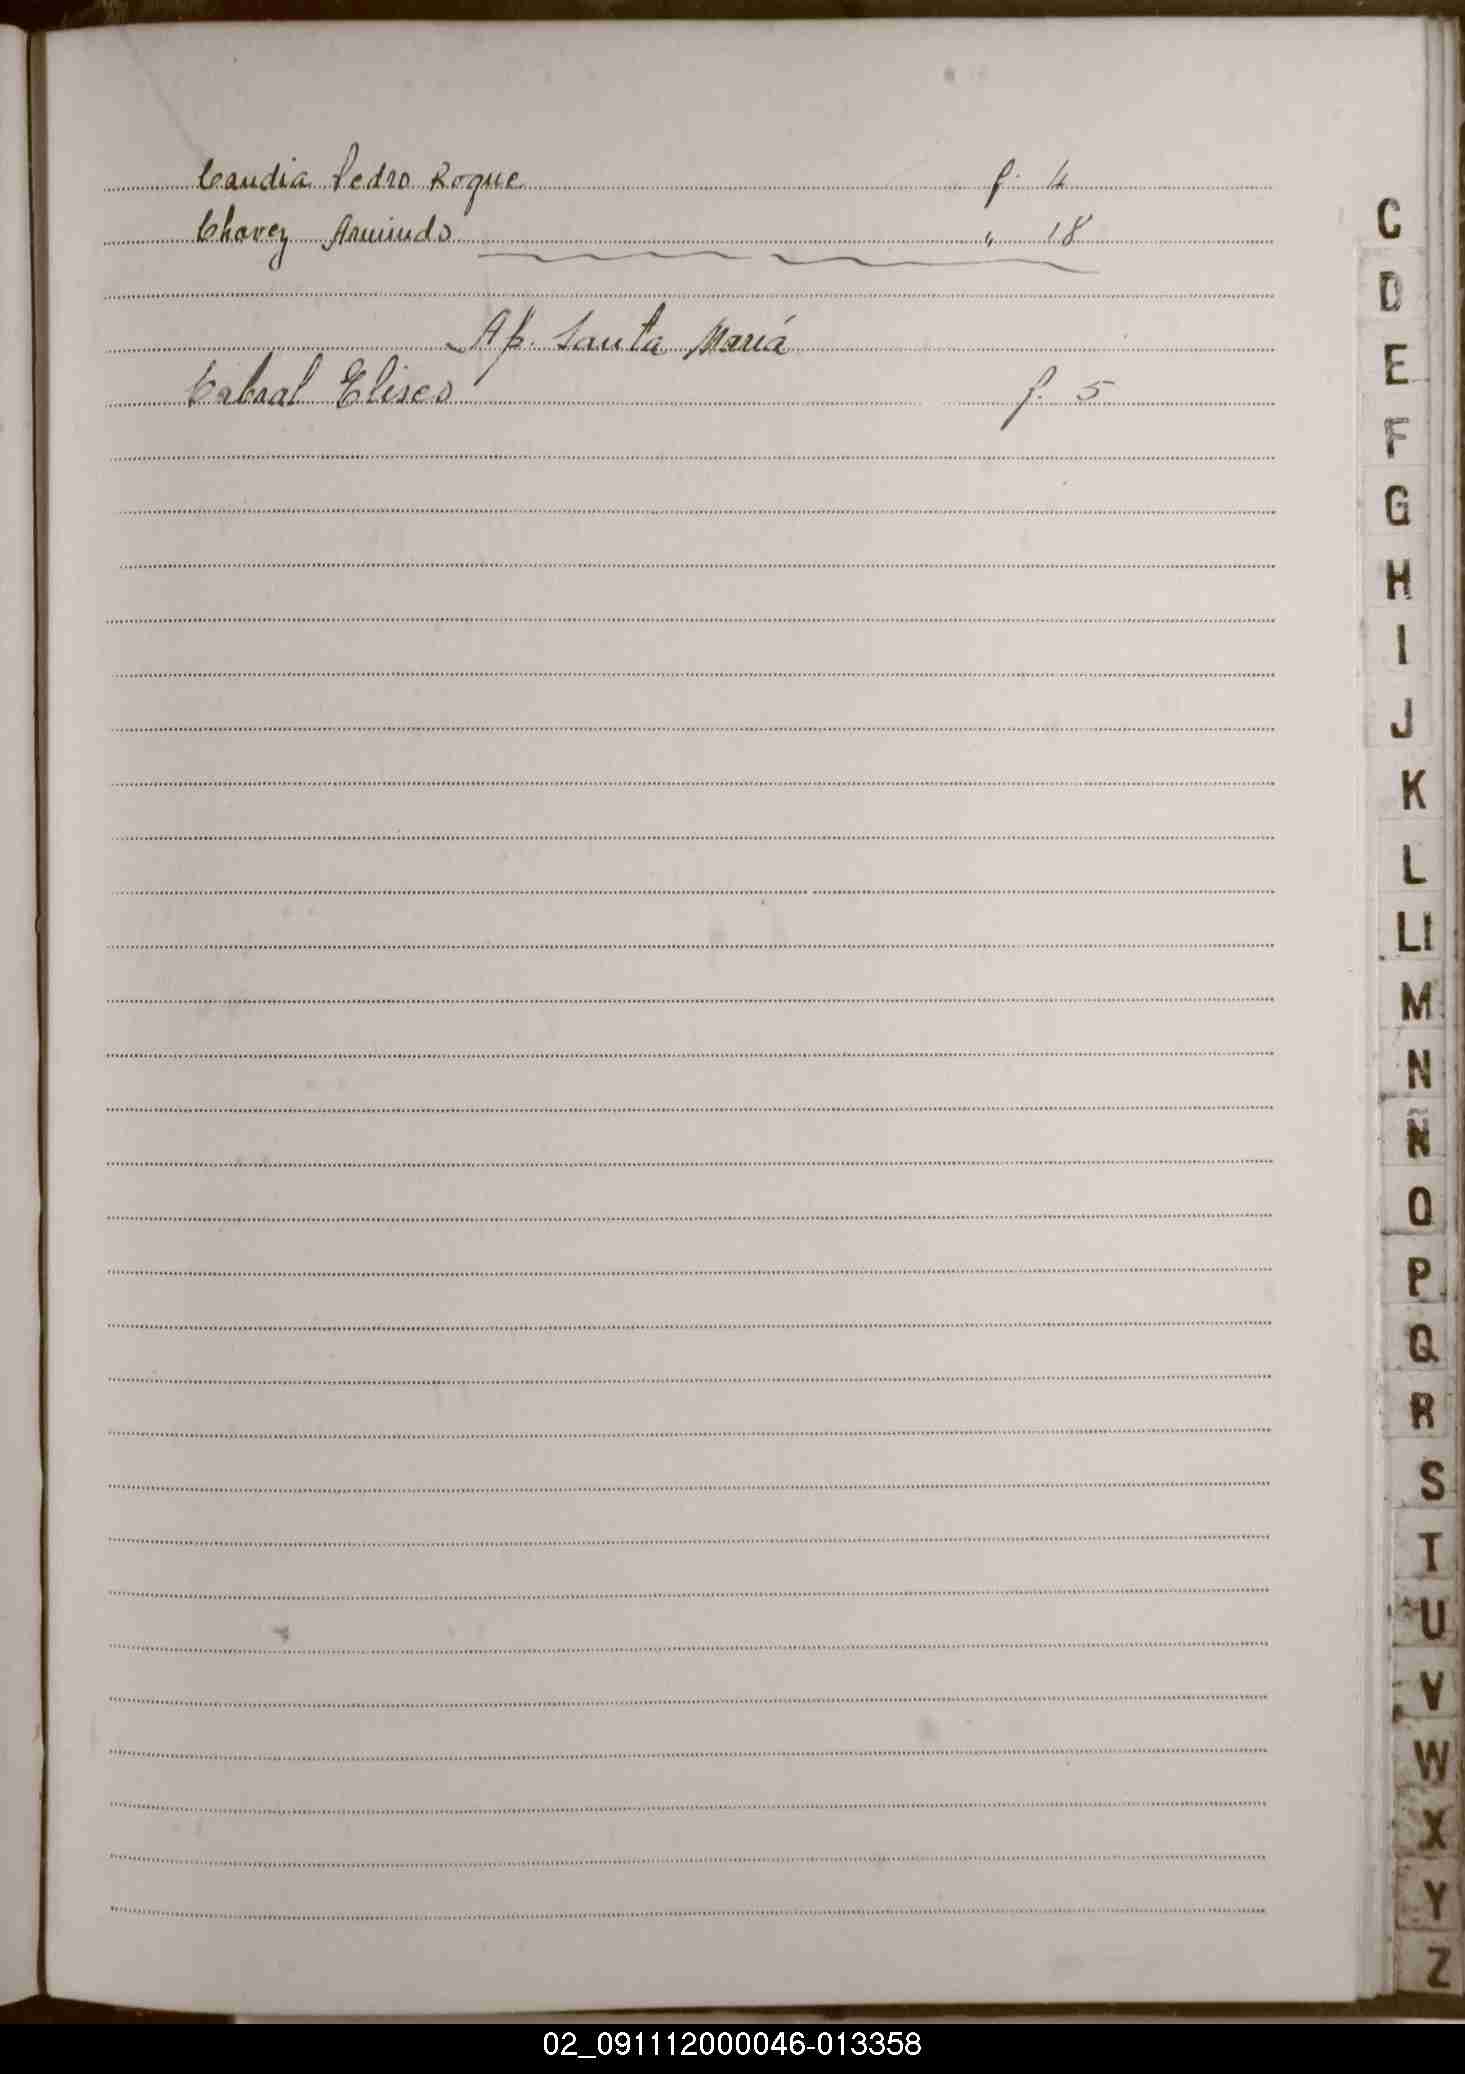 Candia Pedro Roque f. 4
Chavez Armindo " 18
Ap. Santa María
Cabral Eliseo f. 5
C
D
E
F
G
H
I
J
K
L
Ll
M
N
Ñ
O
P
Q
R
S
T
U
V
W
X
Y
Z
02_091112000046-013358